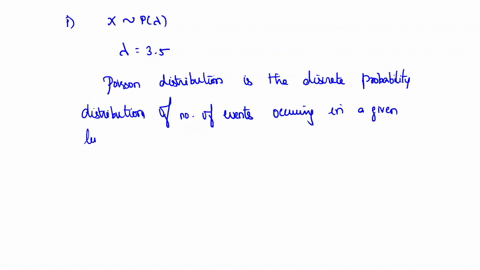 i) X ~ P(λ)
λ = 3.5
Poisson distribution is the discrete probability
distribution of no. of events occuring in a given